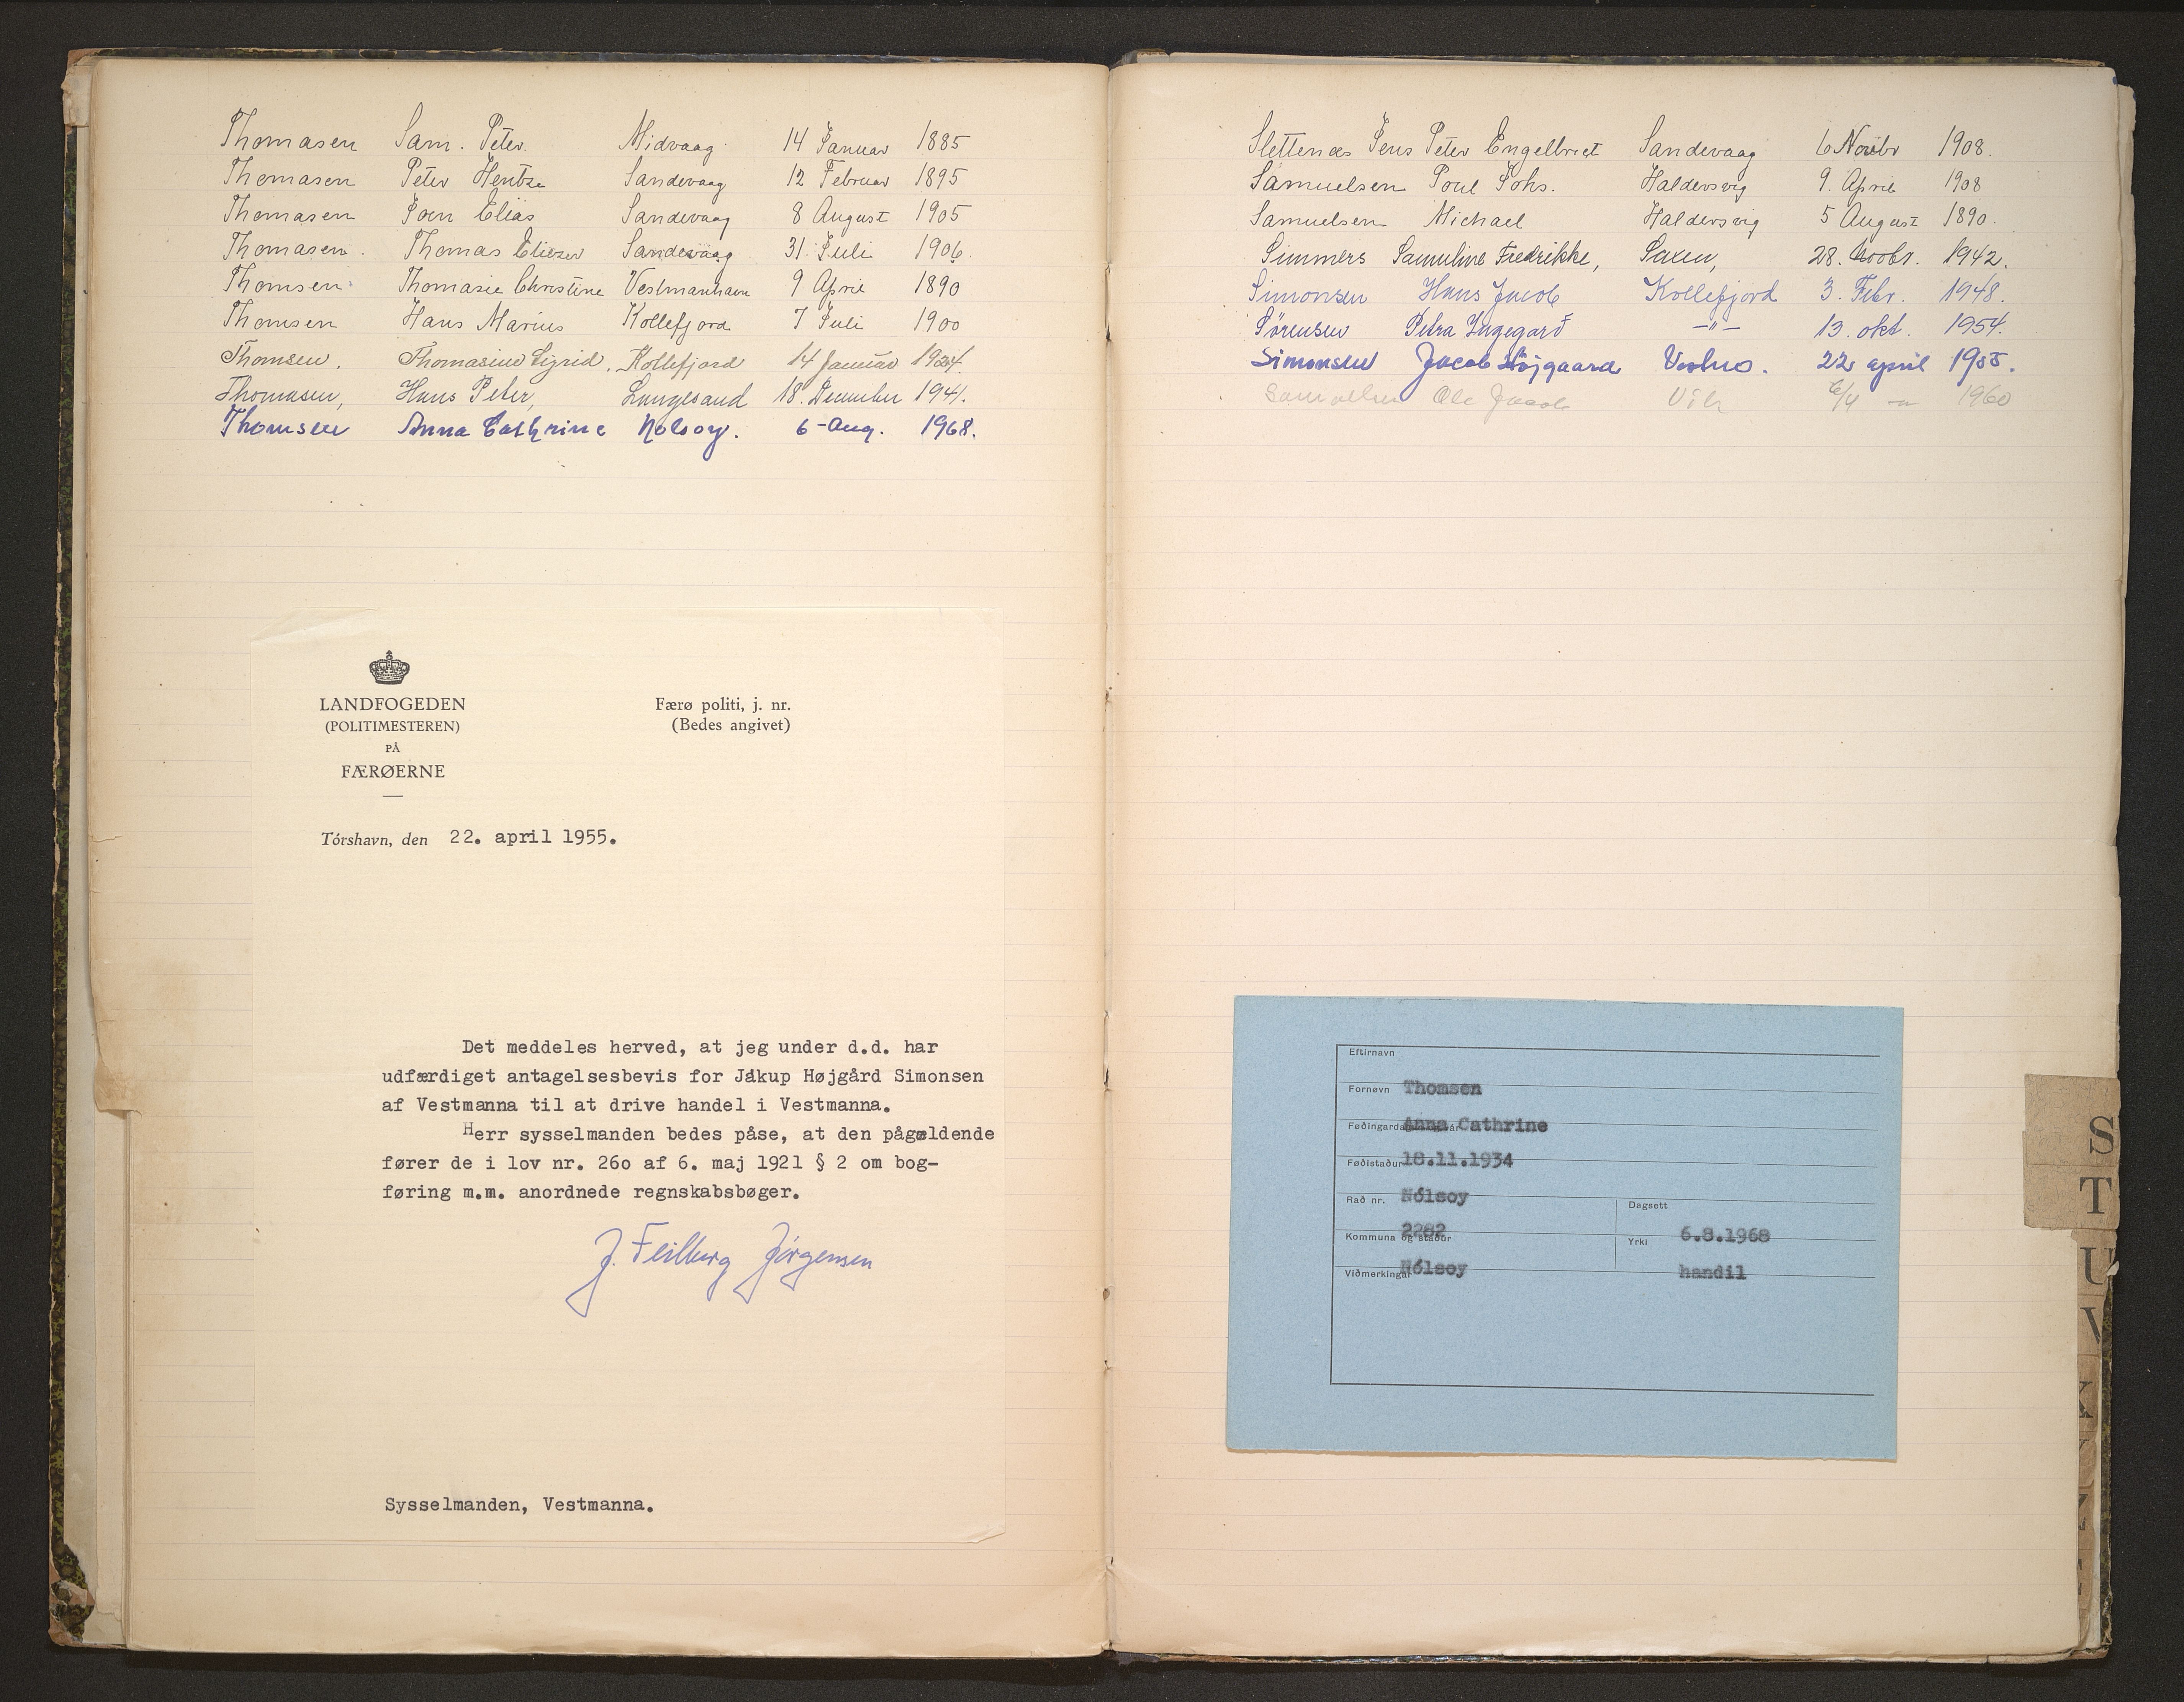 Thomasen Sam. Peter. Midvaag 14 Januar 1885
Thomasen Peter Hentze Sandevaag 12 Februar 1895
Thomasen Joen Elias Sandevaag 8 August 1905
Thomasen. Thomas Elieser Sandevaag 31. Juli 1906.
Thomsen Thomasie Christine Vestmanhavn 9 April 1890
Thomsen Hans Marius Kollefjord 7 Juli 1900
Thomsen. Thomasine Sigrid. Kollefjord 14 Januar
Thomasen, Hans Peter, Langesand 18. December 1941.
Thomsen Anna Cathrine Nolsoy. 6-Aug. 1968.
LANDFOGEDEN
(POLITIMESTEREN)
PÅ
FÆRØERNE
Færø politi, j. nr.
(Bedes angivet)
Tórshavn, den 22. april 1955.
Det meddeles herved, at jeg under d.d. har
udfærdiget antagelsesbevis for Jákup Højgård Simonsen
af Vestmanna til at drive handel i Vestmanna.
Herr sysselmanden bedes påse, at den pågældende
fører de i lov nr. 26o af 6. maj 1921 § 2 om bog-
føring m.m. anordnede regnskabsbøger.
J. Feilberg Jørgensen
Sysselmanden, Vestmanna.
Slettenæs Jens Peter Engelbret Sandevaag 6 Novbr 1908.
Samuelsen Poul Johs. Haldersvig 9. April 1908
Samuelsen Michael Haldersvig 5 August 1890.
Simmers Samuline Fredrikke, Saxen, 28. 1942.
Simonsen Hans Jacob Kollefjord 3. Febr. 1948.
Sørensen Petra Ingegard -"- 13. okt. 1954.
Simonsen Jacob Højgaard 22 april 1955.
Samuelsen Ole Jacob 1960
Eftirnavn
Fornøvn Thomsen
Føðingard Anna Cathrine
Føðistaður 18.11.1934
Rað nr. Nólsoy Dagsett
Kommuna og staður 2282 Yrki 6.8.1968
Viðmerkingar Nólsoy handil
S
T
U
V
X